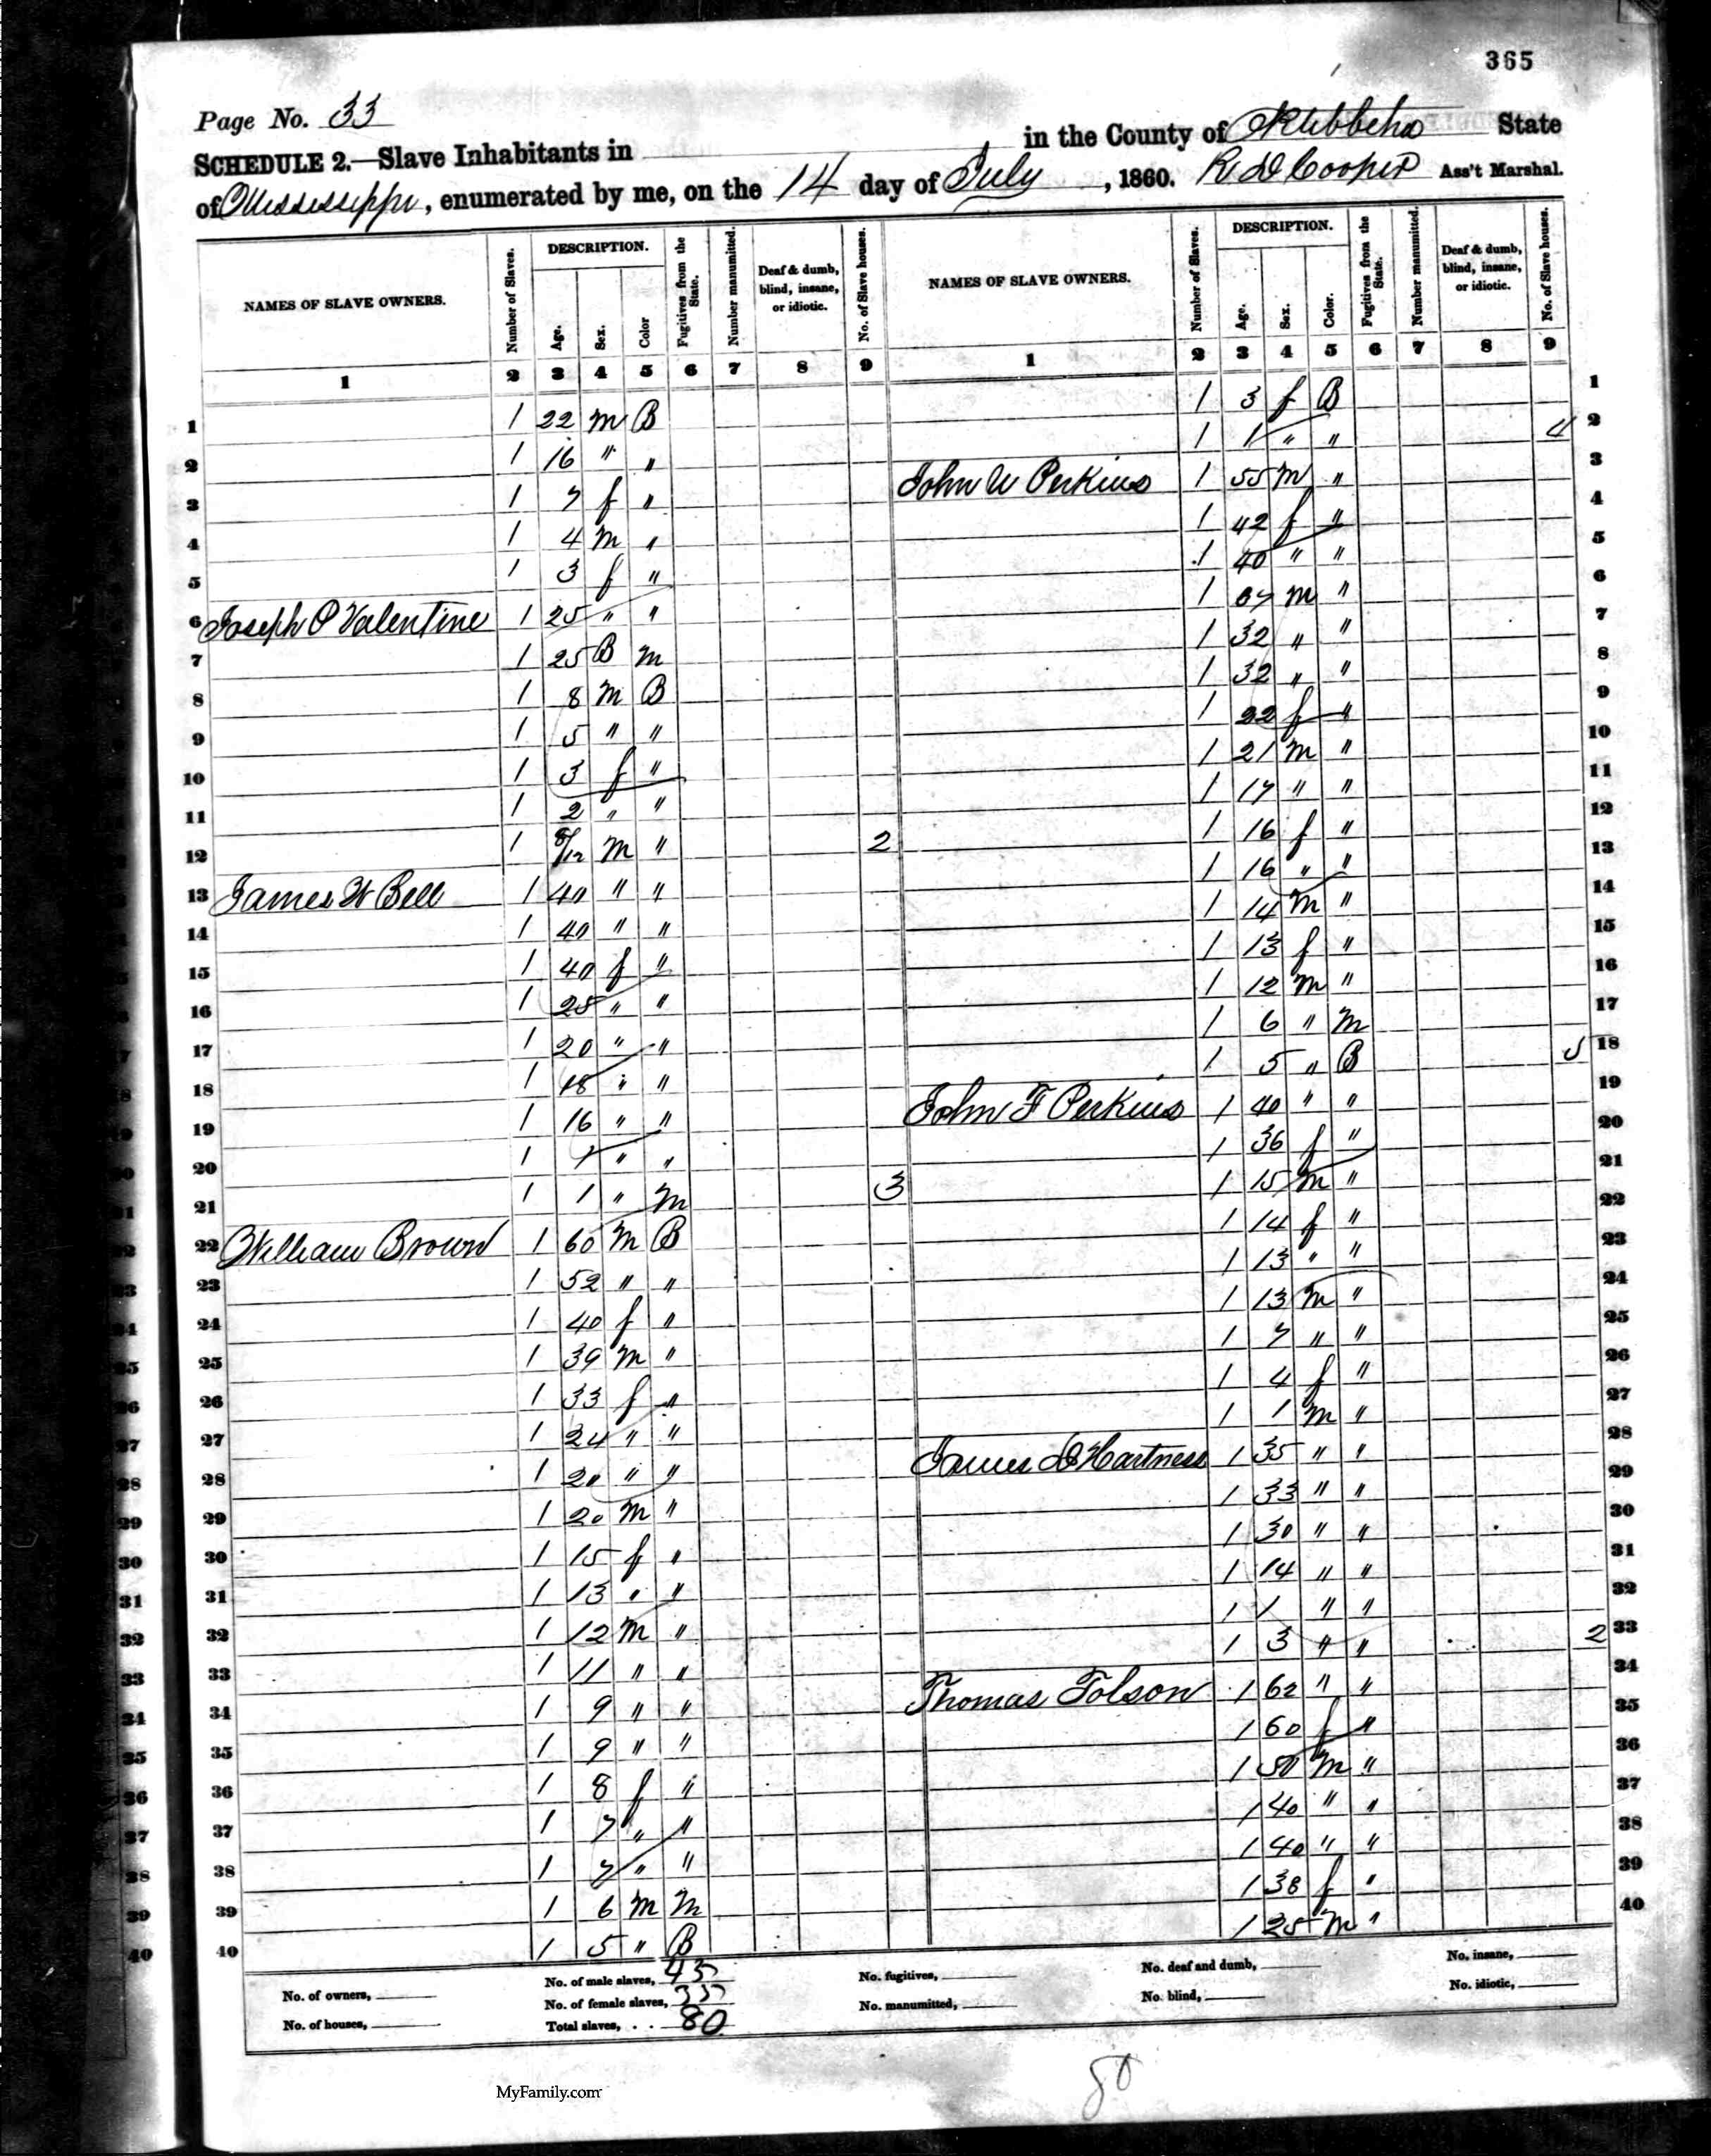 365
Page No. 33
SCHEDULE 2.—Slave Inhabitants in in the County of Oktibbeha State
of Mississippi, enumerated by me, on the 14 day of July, 1860. R D Cooper Ass't Marshal.
NAMES OF SLAVE OWNERS. Number of Slaves. DESCRIPTION. Age. Sex. Color Fugitives from the State. Number manumitted. Deaf & dumb, blind, insane, or idiotic. No. of Slave houses.
1 2 3 4 5 6 7 8 9
1 1 22 m B
2 1 16 " "
3 1 7 f "
4 1 4 m "
5 1 3 f "
6 Joseph P Valentine 1 25 " "
7 1 25 B m
8 1 8 m B
9 1 5 " "
10 1 3 f "
11 1 2 " "
12 1 /12 m " 2
13 James W Bell 1 40 " "
14 1 40 " "
15 1 40 f "
16 1 25 " "
17 1 20 " "
18 1 18 " "
19 1 16 " "
20 1 1 " "
21 1 1 " m 3
22 William Brown 1 60 m B
23 1 52 " "
24 1 40 f "
25 1 39 m "
26 1 33 f "
27 1 24 " "
28 1 20 " "
29 1 20 m "
30 1 15 f "
31 1 13 " "
32 1 12 m "
33 1 11 " "
34 1 9 " "
35 1 9 " "
36 1 8 f "
37 1 7 " "
38 1 7 " "
39 1 6 m m
40 1 5 " B
NAMES OF SLAVE OWNERS. Number of Slaves. DESCRIPTION. Age. Sex. Color. Fugitives from the State. Number manumitted. Deaf & dumb, blind, insane, or idiotic. No. of Slave houses.
1 2 3 4 5 6 7 8 9
1 3 f B 1
1 1 " " 4 2
John W Perkins 1 55 m " 3
1 42 f " 4
1 40 " " 5
1 m " 6
1 32 " " 7
1 32 " " 8
1 22 f " 9
1 21 m " 10
1 17 " " 11
1 16 f " 12
1 16 " " 13
1 14 m " 14
1 13 f " 15
1 12 m " 16
1 6 " m 17
1 5 " B 5 18
John F Perkins 1 40 " " 19
1 36 f " 20
1 15 m " 21
1 14 f " 22
1 13 " " 23
1 13 m " 24
1 7 " " 25
1 4 f " 26
1 1 m " 27
James D Hartness 1 35 " " 28
1 33 " " 29
1 30 " " 30
1 14 " " 31
1 1 " " 32
1 3 " " 2 33
Thomas Tolson 1 62 " " 34
1 60 f " 35
1 50 m " 36
1 40 " " 37
1 40 " " 38
1 38 f " 39
1 25 m " 40
No. of owners, No. of male slaves, 45 No. fugitives, No. deaf and dumb, No. insane,
No. of houses, No. of female slaves, 35 No. manumitted, No. blind, No. idiotic,
Total slaves, . . 80
80
MyFamily.com